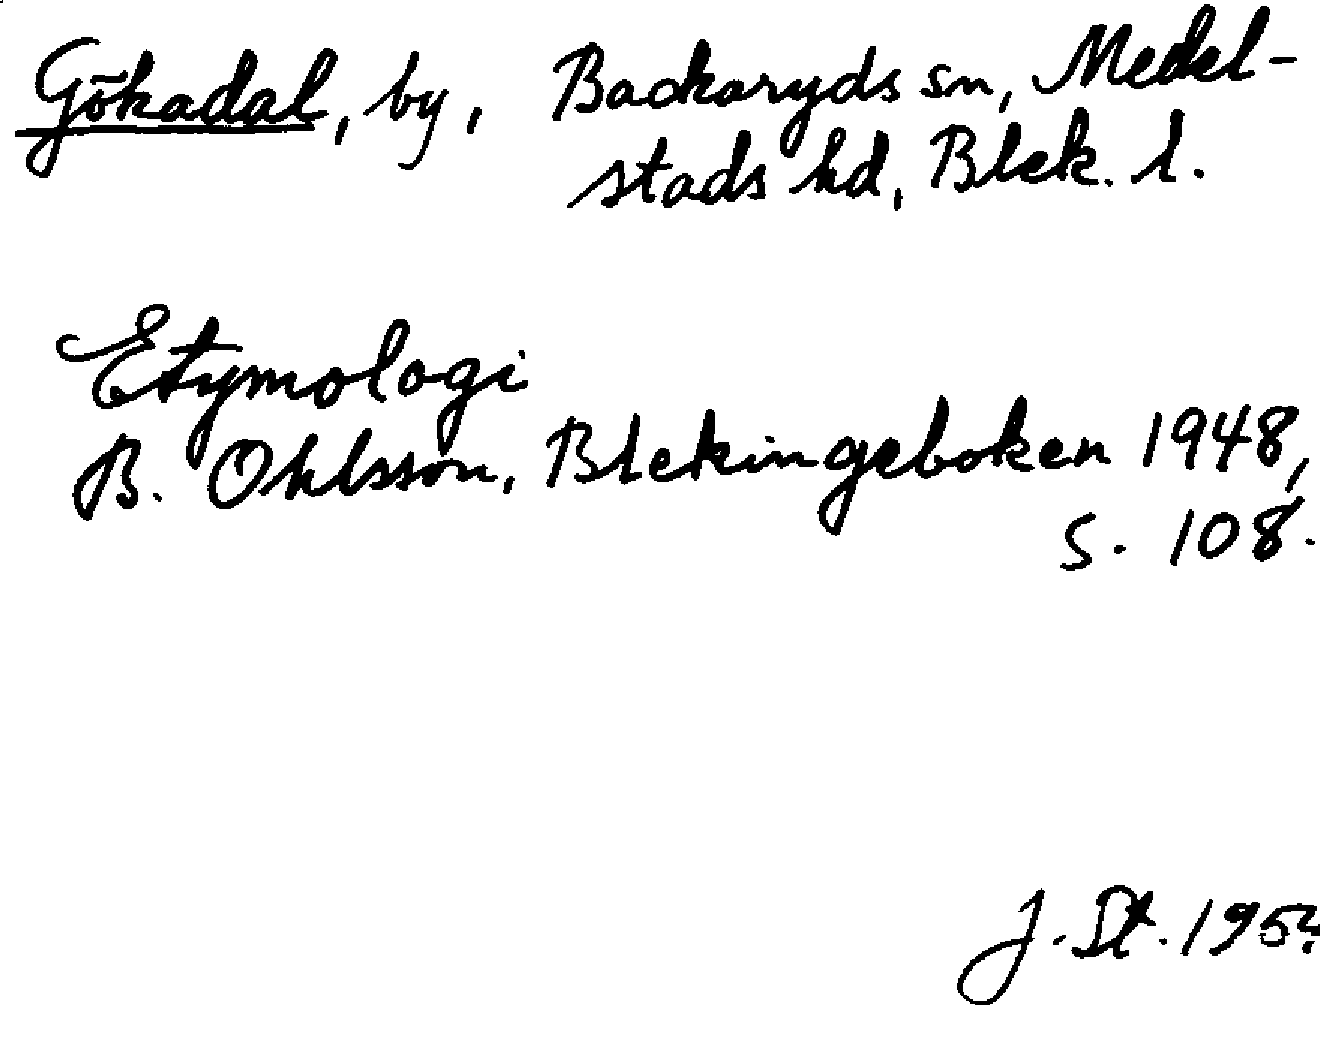 Gökadal, by, Backaryds sn, Medel-
stads hd, Blek. l.
Etymologi
B. Ohlsson, Blekingeboken 1948,
s. 108.
J. St.